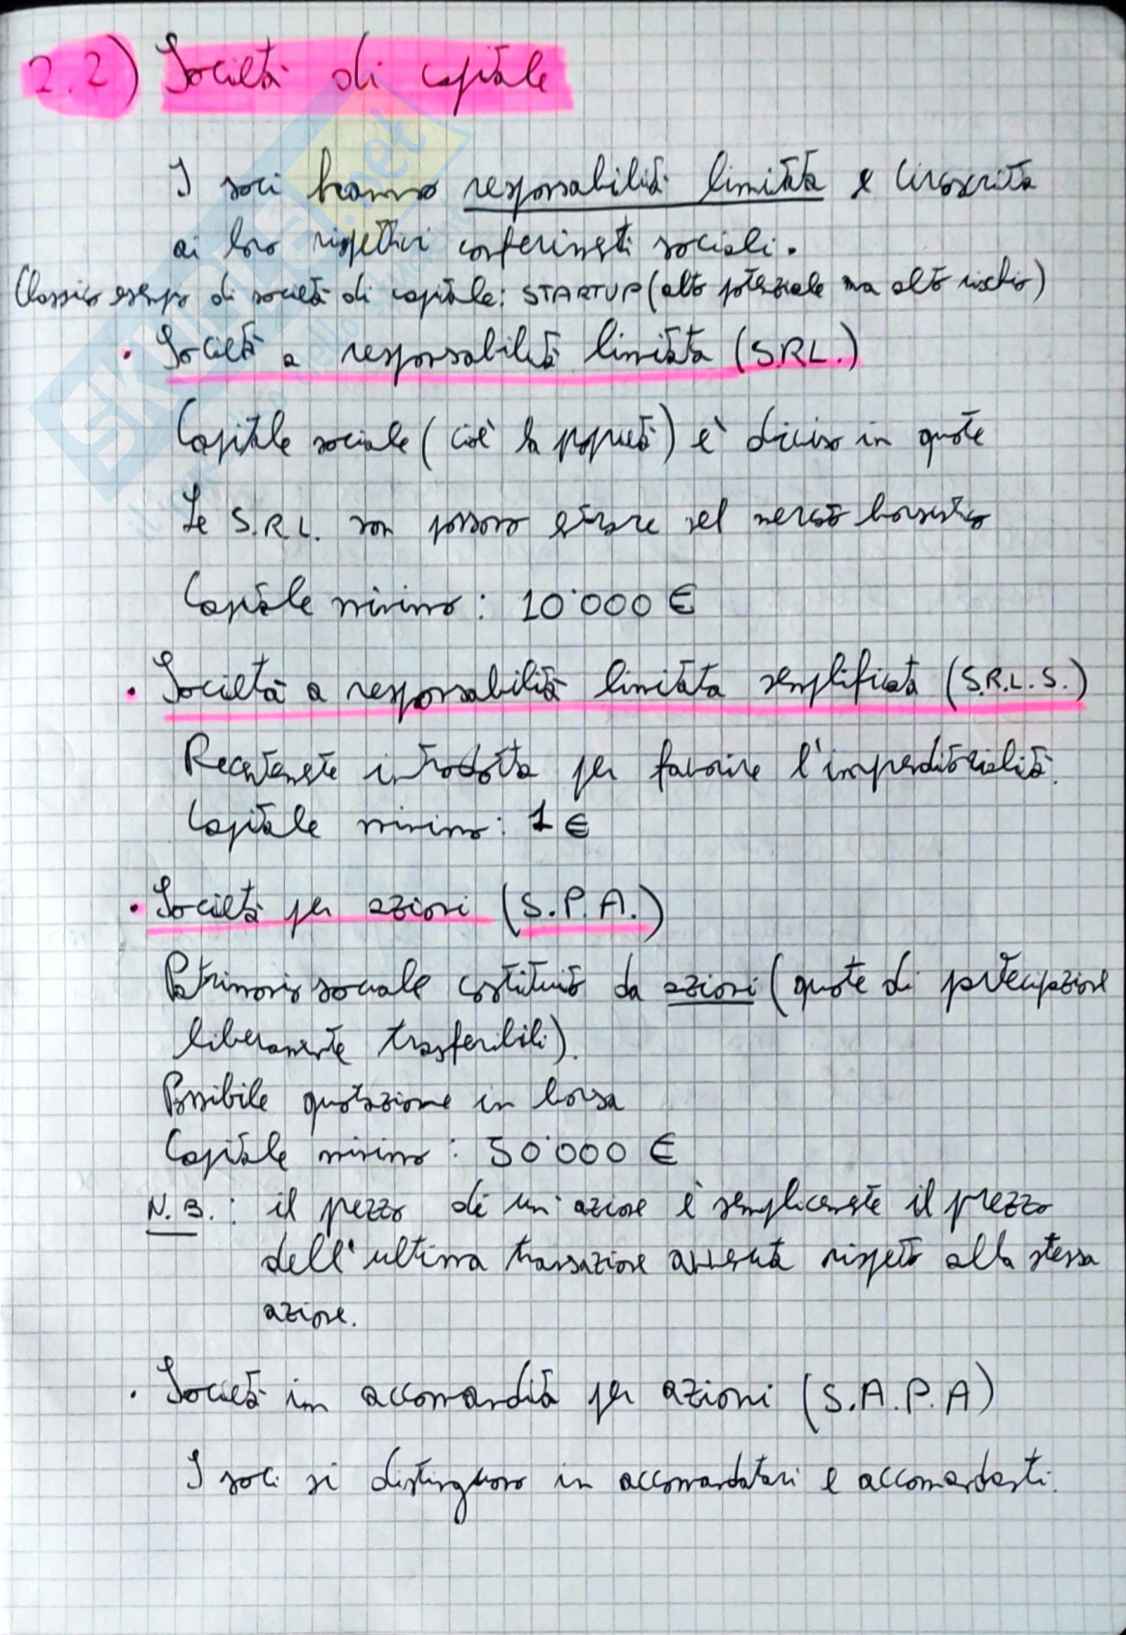 2.2) Società di capitale
I soci hanno responsabilità limitata e circoscritta
ai loro rispettivi conferimenti sociali.
Classico esempio di società di capitale: STARTUP (alto potenziale ma alto rischio)
• Società a responsabilità limitata (S.R.L.)
Capitale sociale (cioè la proprietà) è diviso in quote
Le S.R.L. non possono entrare nel mercato borsistico
Capitale minimo: 10'000 €
• Società a responsabilità limitata semplificata (S.R.L.S.)
Recentemente introdotta per favorire l'imprenditorialità.
Capitale minimo: 1 €
• Società per azioni (S.P.A.)
Patrimonio sociale costituito da azioni (quote di partecipazione
liberamente trasferibili).
Possibile quotazione in borsa
Capitale minimo: 50'000 €
N.B.: il prezzo di un'azione è semplicemente il prezzo
dell'ultima transazione avvenuta rispetto alla stessa
azione.
• Società in accomandità per azioni (S.A.P.A)
I soci si distinguono in accomandatari e accomandanti.
SKUOLA.net